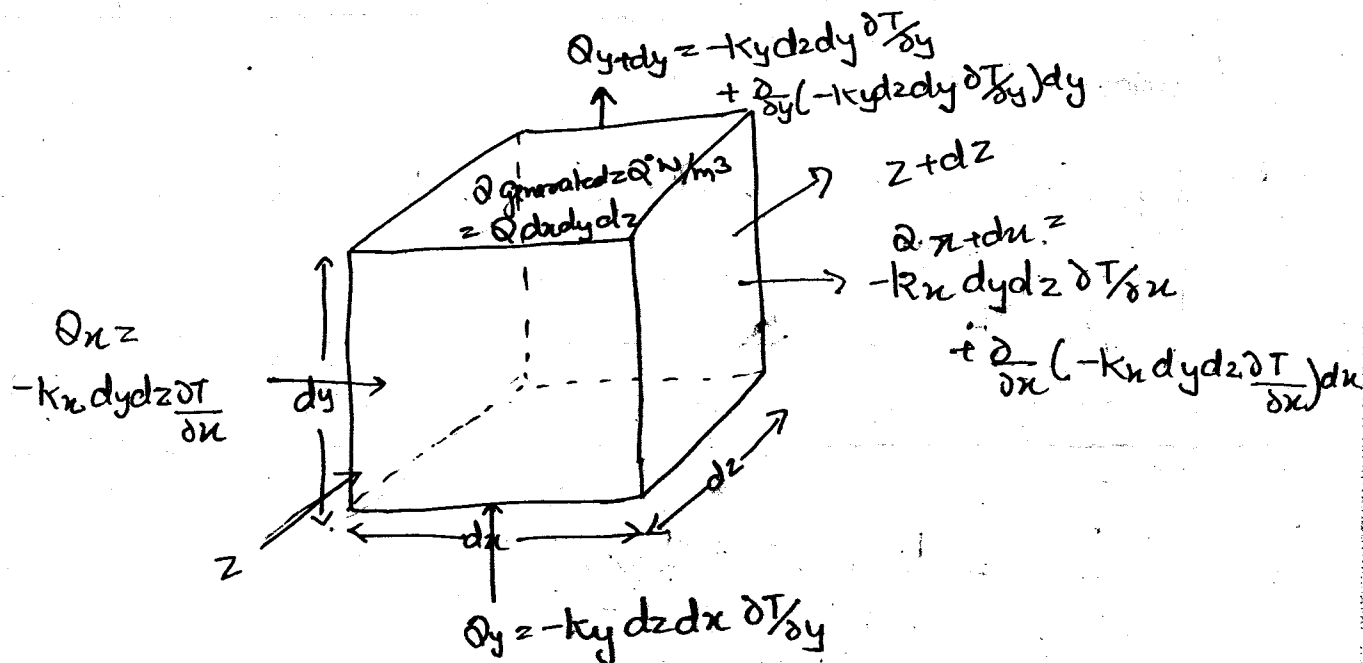 Qy+dy = -ky dz dy ∂T/∂y
+ ∂/∂y (-ky dz dy ∂T/∂y) dy
Q generated = Q° W/m3
= Q dx dy dz
z+dz
Q x+dx =
-kx dy dz ∂T/∂x
+ ∂/∂x (-kx dy dz ∂T/∂x) dx
Qx =
-kx dy dz ∂T/∂x
dy
dz
dx
z
Qy = -ky dz dx ∂T/∂y